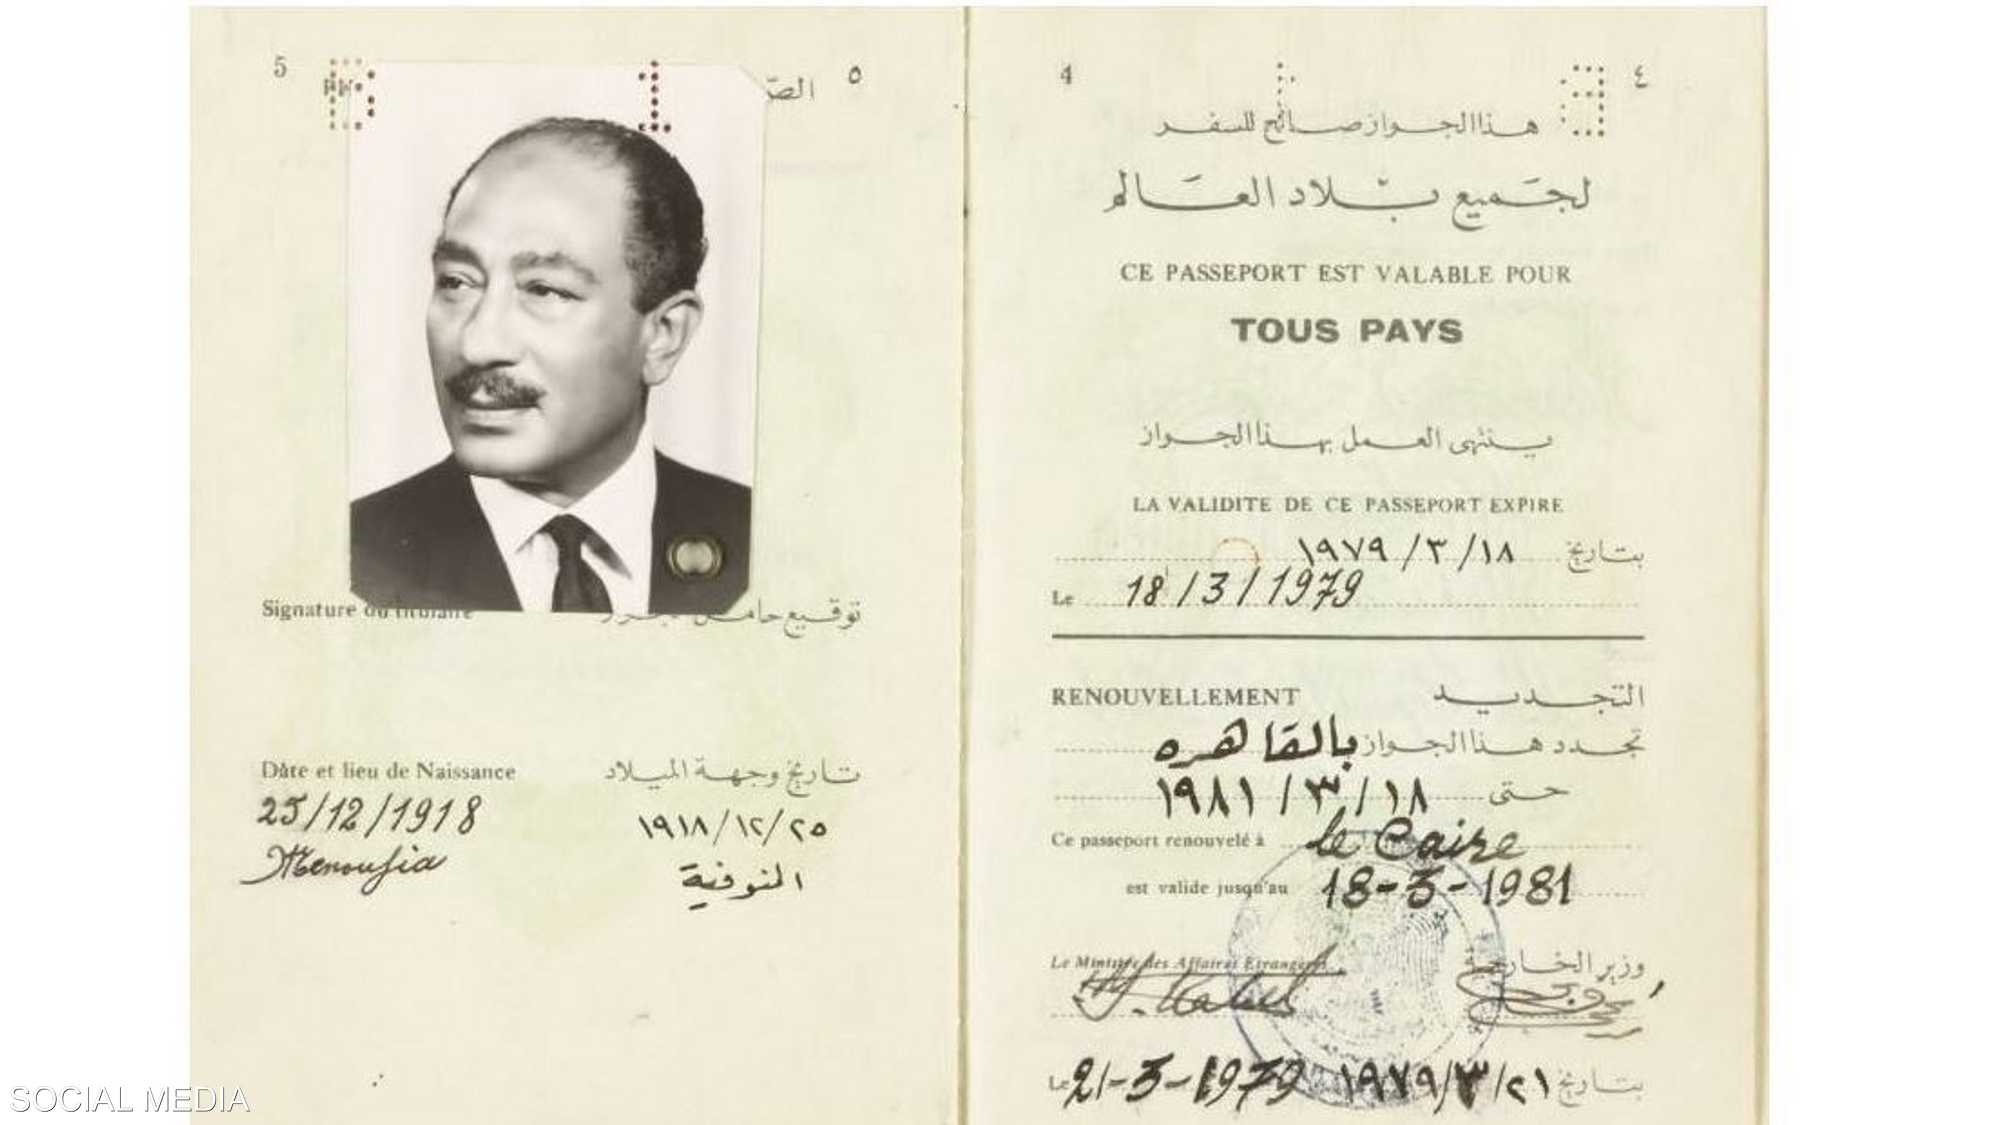 5
٥
Signature du titulaire
توقيع حامل
Dâte et lieu de Naissance
تاريخ وجهة الميلاد
25/12/1918
١٩١٨/١٢/٢٥
Menoufia
المنوفية
4
٤
هذا الجواز صالح للسفر
لجميع بلاد العالم
CE PASSEPORT EST VALABLE POUR
TOUS PAYS
ينتهى العمل بهذا الجواز
LA VALIDITE DE CE PASSEPORT EXPIRE
بتاريخ ١٨/٣/١٩٧٩
Le 18/3/1979
RENOUVELLEMENT التجديد
تجدد هذا الجواز بالقاهره
حتى ١٨/٣/١٩٨١
Ce passeport renouvelé à le Caire
est valide jusqu'au 18-3-1981
Le Ministre des Affaires Etrangères وزير الخارجية
Le 21-3-1979 بتاريخ ٢١/٣/١٩٧٩
SOCIAL MEDIA